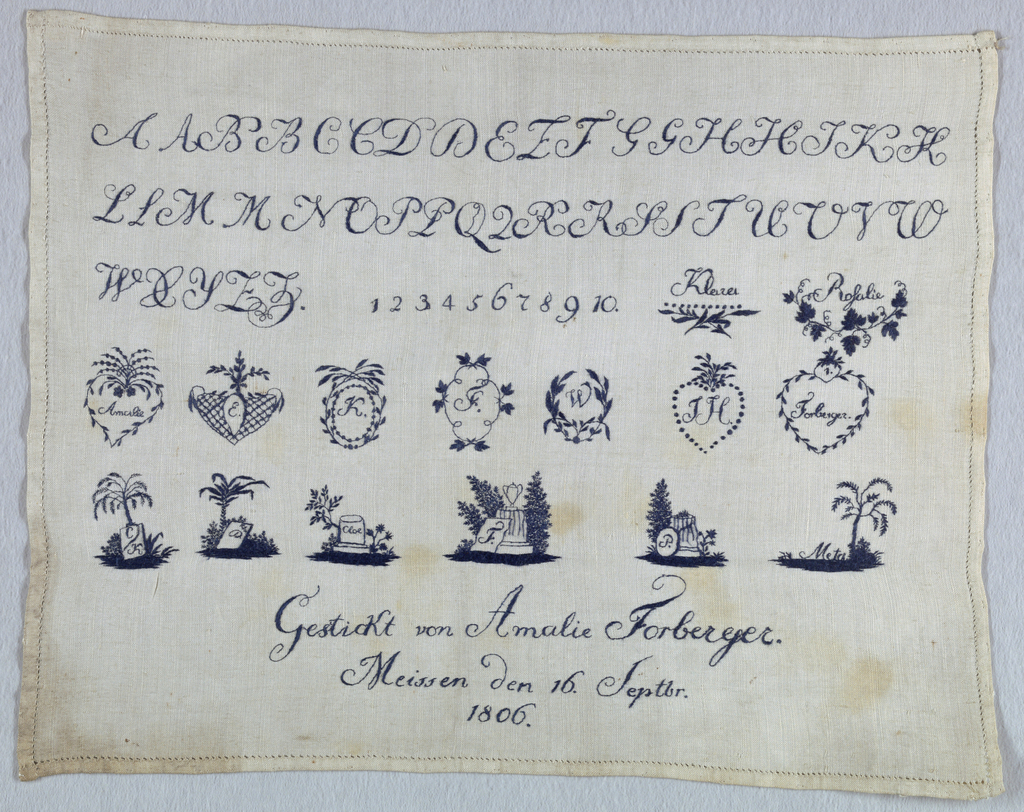 A A B B C C D D E E F G G H H I K K
L L M M N O P P Q Q R R S S T U V V W
W X Y Z Z. 1 2 3 4 5 6 7 8 9 10. Klara Rosalie
Amalie E. K. F. W J H Forberger.
Cloe F. P. Meta
Gestickt von Amalie Forberger.
Meissen den 16. Septbr.
1806.